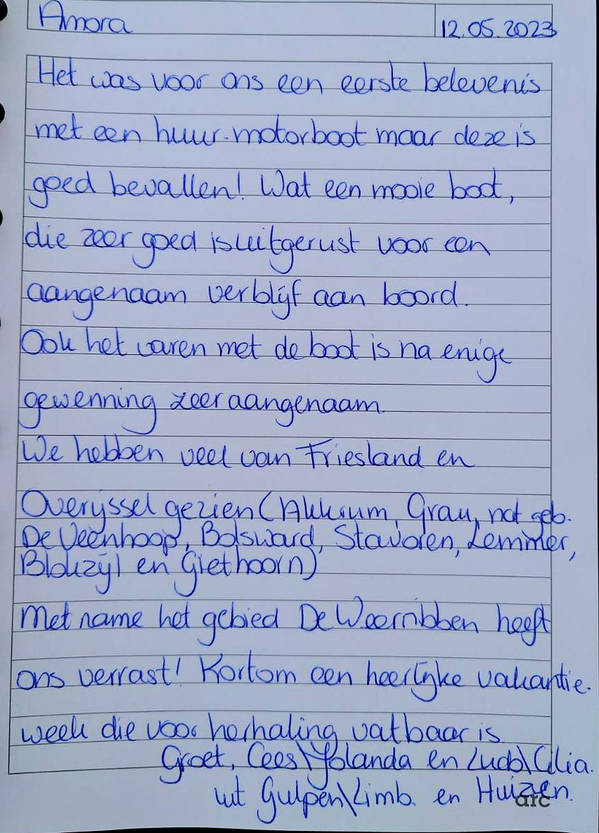 Amora 12.05.2023
Het was voor ons een eerste belevenis
met een huur-motorboot maar deze is
goed bevallen! Wat een mooie boot,
die zeer goed is uitgerust voor een
aangenaam verblijf aan boord.
Ook het varen met de boot is na enige
gewenning zeer aangenaam.
We hebben veel van Friesland en
Overijssel gezien (Akkrum, Grau, nat. geb.
De Veenhoop, Bolsward, Stavoren, Lemmer,
Blokzijl en Giethoorn)
Met name het gebied De Weerribben heeft
ons verrast! Kortom een heerlijke vakantie-
week die voor herhaling vatbaar is
Groet, Cees\Yolanda en Ludo\Cilia.
uit Gulpen\Limb. en Huizen.
afc